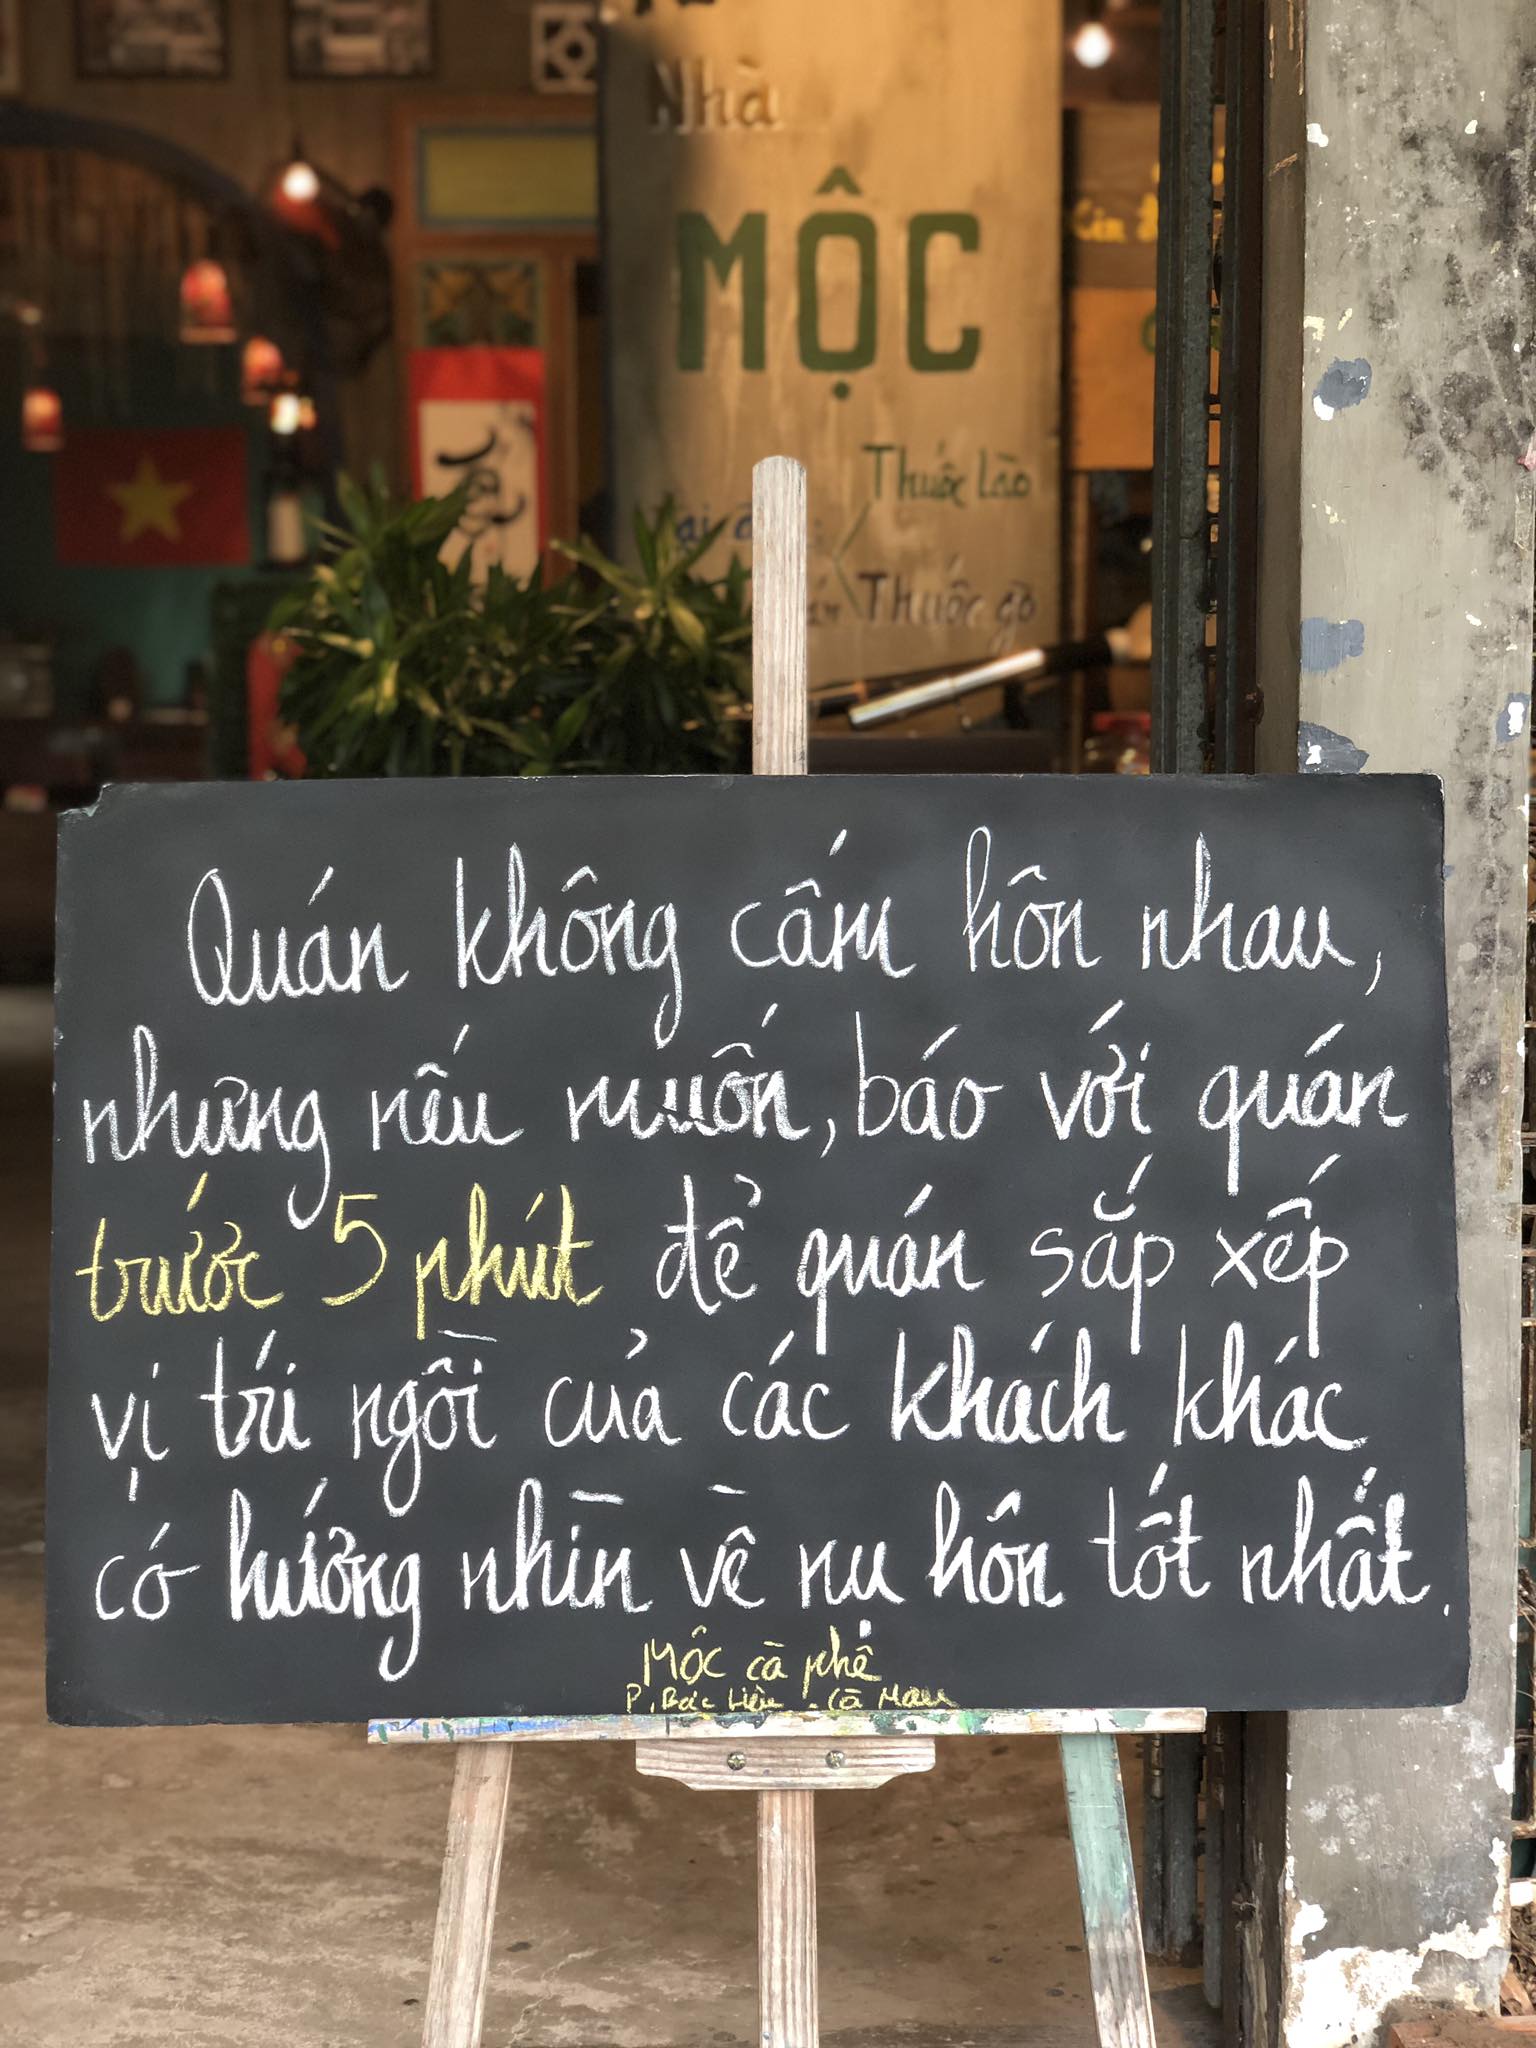 Nhà
MỘC
Thuốc Lào
Thuốc gò
Quán không cấm hôn nhau,
nhưng nếu muốn, báo với quán
trước 5 phút để quán sắp xếp
vị trí ngồi của các khách khác
có hướng nhìn về nụ hôn tốt nhất.
MỘC cà phê
P. Bạc Liêu - Cà Mau